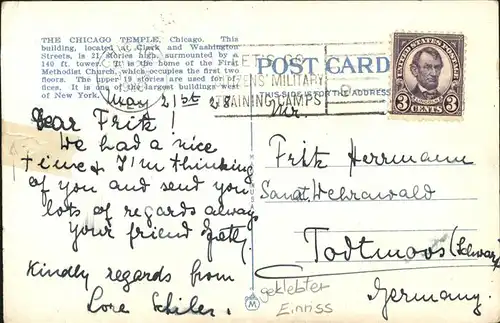 THE CHICAGO TEMPLE, Chicago. This
building, located at Clark and Washington
Streets, is 21 stories high, surmounted by a
140 ft. tower. It is the home of the First
Methodist Church, which occupies the first two
floors. The upper 19 stories are used for offices.
It is one of the largest buildings west
of New York.
POST CARD
THIS SIDE IS FOR THE ADDRESS
MILITARY
TRAINING CAMPS
UNITED STATES POSTAGE
3 CENTS 3
May 21st 28.
Dear Fritz!
We had a nice
time & I'm thinking
of you and send you
lots of regards always
your friend
Kindly regards from
Lore Schiler.
Mr.
Fritz Herrmann
Sanat. Wehrawald
Todtmoos (Schwarz
Germany.
geklebter
Einriss
M